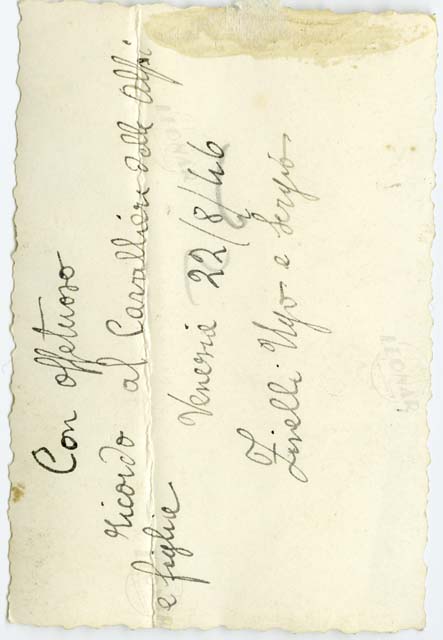 Con affetuoso
ricordo al Cavallliere delle Alpi
e figlie
Venezia 22/8/46
Zirelli Ugo e Sergio
LEONAR